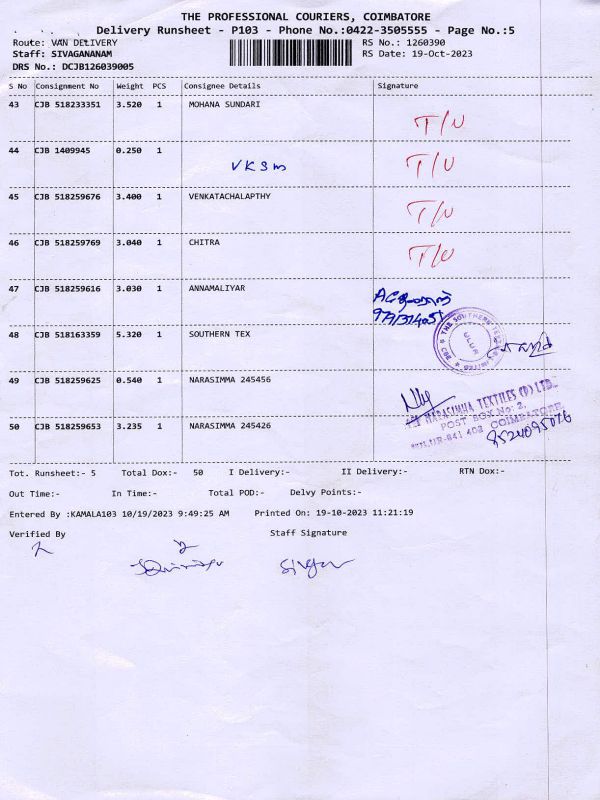 THE PROFESSIONAL COURIERS, COIMBATORE
Delivery Runsheet - P103 - Phone No.:0422-3505555 - Page No.:5
Route: VAN DELIVERY RS No.: 1260390
Staff: SIVAGANANAM RS Date: 19-Oct-2023
DRS No.: DCJB126039005
S No Consignment No Weight PCS Consignee Details Signature
43 CJB 518233351 3.520 1 MOHANA SUNDARI T/U
44 CJB 1409945 0.250 1 VKSM T/U
45 CJB 518259676 3.400 1 VENKATACHALAPTHY T/U
46 CJB 518259769 3.040 1 CHITRA T/U
47 CJB 518259616 3.030 1 ANNAMALIYAR
48 CJB 518163359 5.320 1 SOUTHERN TEX
THE SOUTHERN
SULUR
49 CJB 518259625 0.540 1 NARASIMMA 245456
NARASIMHA TEXTILES (P) LTD.
POST BOX No: 2,
SULUR-641 402 COIMBATORE
50 CJB 518259653 3.235 1 NARASIMMA 245426
8524095076
Tot. Runsheet:- 5 Total Dox:- 50 I Delivery:- II Delivery:- RTN Dox:-
Out Time:- In Time:- Total POD:- Delvy Points:-
Entered By :KAMALA103 10/19/2023 9:49:25 AM Printed On: 19-10-2023 11:21:19
Verified By Staff Signature